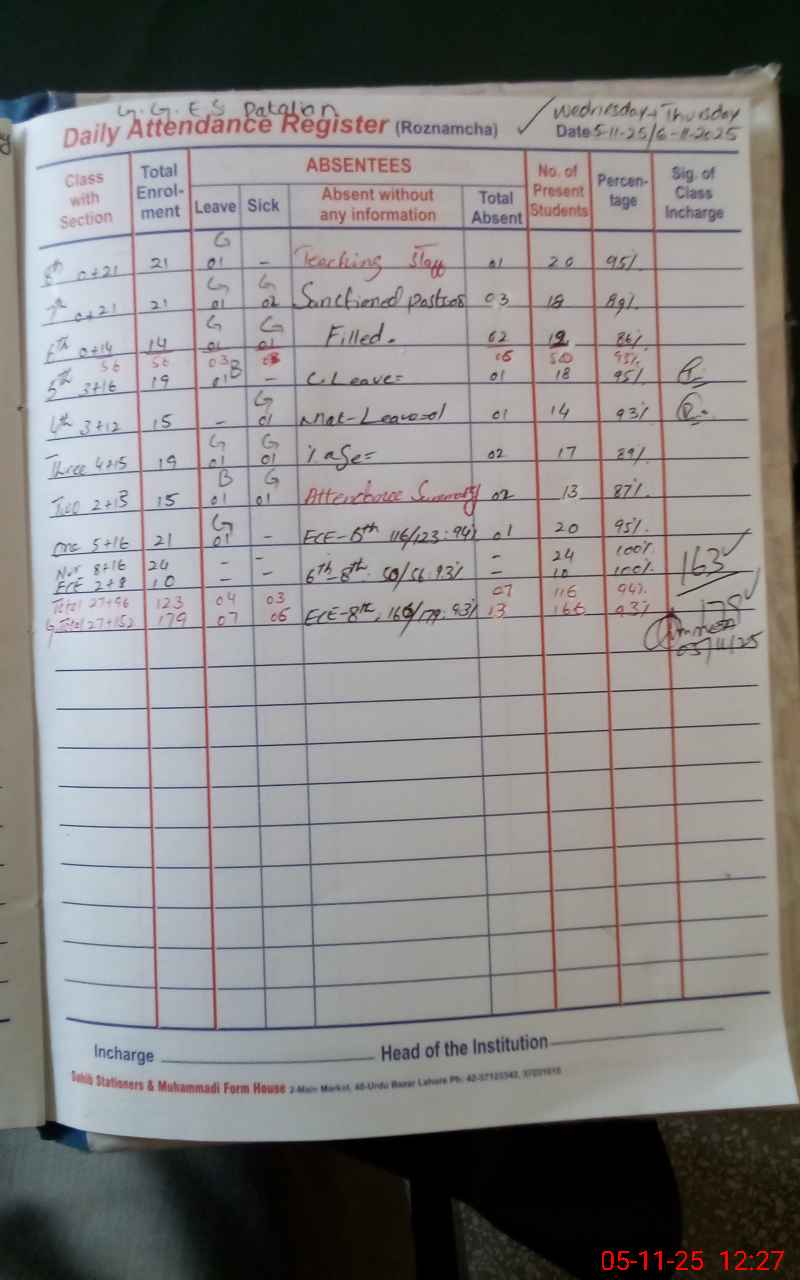 G.G.E.S Patalian
Wednesday + Thursday
Daily Attendance Register (Roznamcha) ✓ Date 5-11-25/6-11-2025
Class with Section Total Enrol-ment ABSENTEES No. of Present Students Percen-tage Sig. of Class Incharge
Leave Sick Absent without any information Total Absent
G
8th 0+21 21 01 - Teaching Staff 01 20 95%
G G
7th 0+21 21 01 02 Sanctioned 03 18 89%
G G
6th 0+14 14 01 01 Filled. 02 12 86%
56 56 03 50
5th 3+16 19 01 B - C.Leave= 01 18 95%
G
4th 3+12 15 - 01 01 14 93%
G G
Three 4+15 19 01 01 %age= 02 17 89%
B G
Two 2+13 15 01 01 Attendance Summary 02 13 87%
G
One 5+16 21 01 - ECE-5th 116/123:94% 01 20 95%
Nur 8+16 24 - - - 24 100%
ECE 2+8 10 - - 6th-8th: 50/56:93% - 10 100%
163 ✓
Total 27+96 123 04 03 07 116 94%
G.Total 27+152 179 07 06 ECE-8th, 166/179:93% 13 166 93%
05/11/25
Incharge Head of the Institution
Sohib Stationers & Muhammadi Form House 2-Main Market, 40-Urdu Bazar Lahore Ph:
05-11-25 12:27